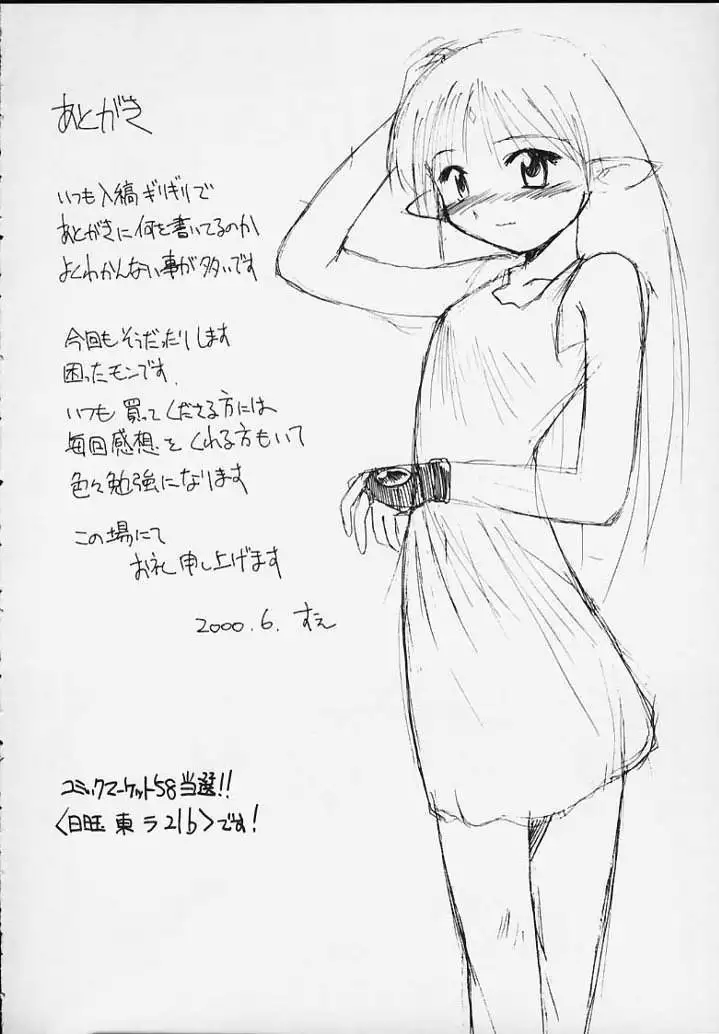 あとがき
いつも入稿ギリギリで
あとがきに何を書いてるのか
よくわかんない事が多いです
今回もそうだったりします
困ったモンです.
いつも買ってくださる方には
毎回感想をくれる方もいて
色々勉強になります
この場にて
お礼申し上げます
2000.6. すえ
コミックマーケット58当選!!
〈日曜 東 ラ21b〉です!